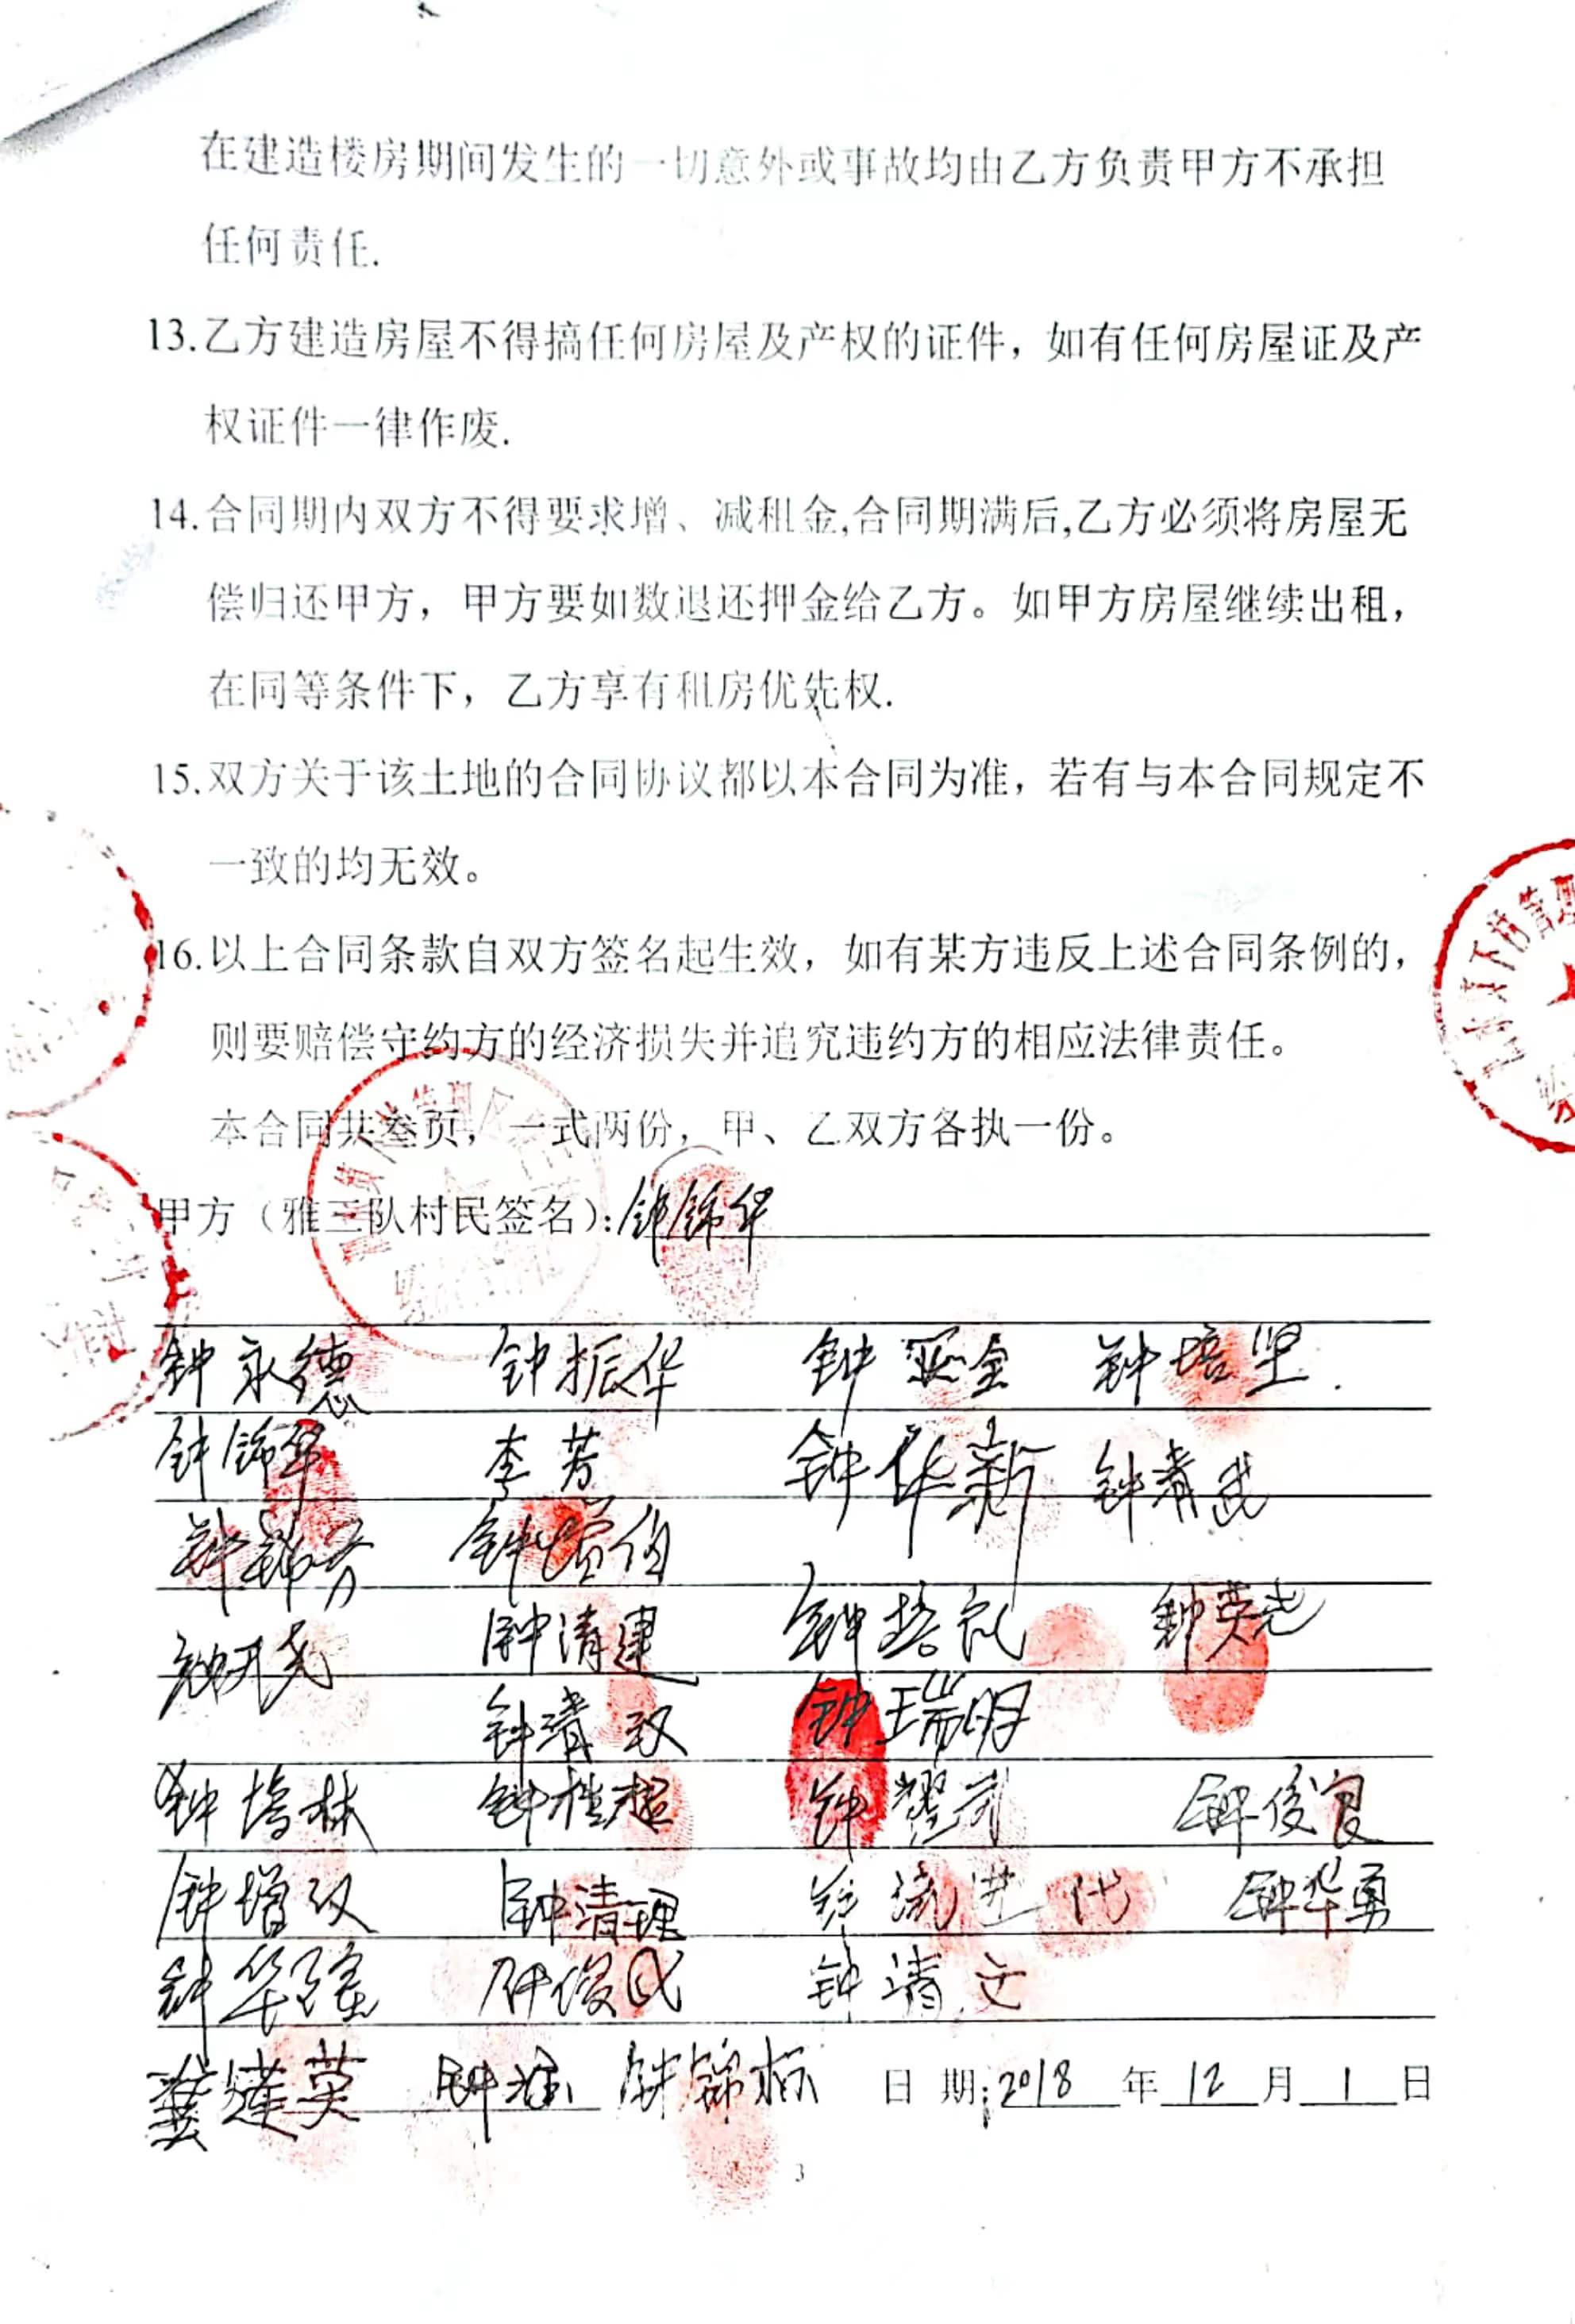 在建造楼房期间发生的一切意外或事故均由乙方负责甲方不承担
任何责任.
13.乙方建造房屋不得搞任何房屋及产权的证件，如有任何房屋证及产
权证件一律作废.
14.合同期内双方不得要求增、减租金,合同期满后,乙方必须将房屋无
偿归还甲方，甲方要如数退还押金给乙方。如甲方房屋继续出租，
在同等条件下，乙方享有租房优先权.
15.双方关于该土地的合同协议都以本合同为准，若有与本合同规定不
一致的均无效。
16.以上合同条款自双方签名起生效，如有某方违反上述合同条例的，
则要赔偿守约方的经济损失并追究违约方的相应法律责任。
本合同共叁页，一式两份，甲、乙双方各执一份。
甲方（雅三队村民签名）：钟锦华
钟永德 钟振华 钟亚金 钟培坚
钟锦华 李芳 钟华新 钟清武
钟锦芬 钟
钟开尧 钟清建 钟培 钟英尧
钟清双 钟瑞明
钟培林 钟桂超 钟耀 钟俊良
钟增双 钟清理 进 代 钟华勇
钟华强 钟俊民 钟清文
龚莲英 钟 钟锦标 日 期：2018 年 12 月 1 日
3